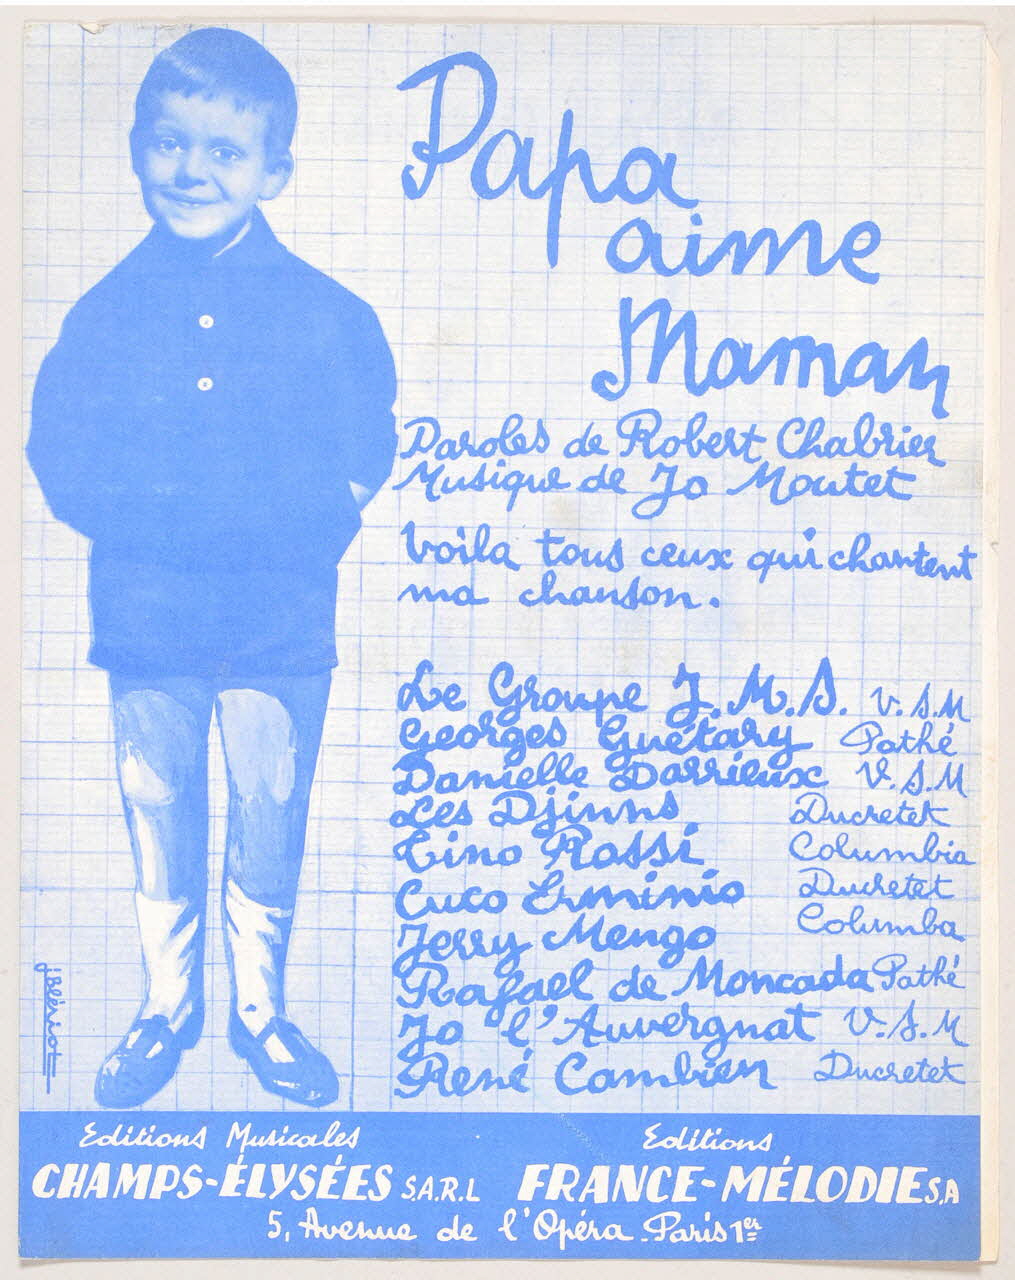 Papa
aime
Maman
Paroles de Robert Chabrier
Musique de Jo Moutet
Voila tous ceux qui chantent
ma chanson.
Le Groupe J.M.S. V.S.M
Georges Guétary Pathé
Danielle Darrieux V.S.M
Les Djinns Ducretet
Tino Rossi Columbia
Cuco Erminio Ducretet
Jerry Mengo Columba
Rafael de Moncada Pathé
Jo l'Auvergnat V.S.M
René Cambien Ducretet
j Blériot
Editions Musicales
CHAMPS-ÉLYSÉES S.A.R.L
Editions
FRANCE-MÉLODIE S.A
5, Avenue de l'Opéra - Paris 1er